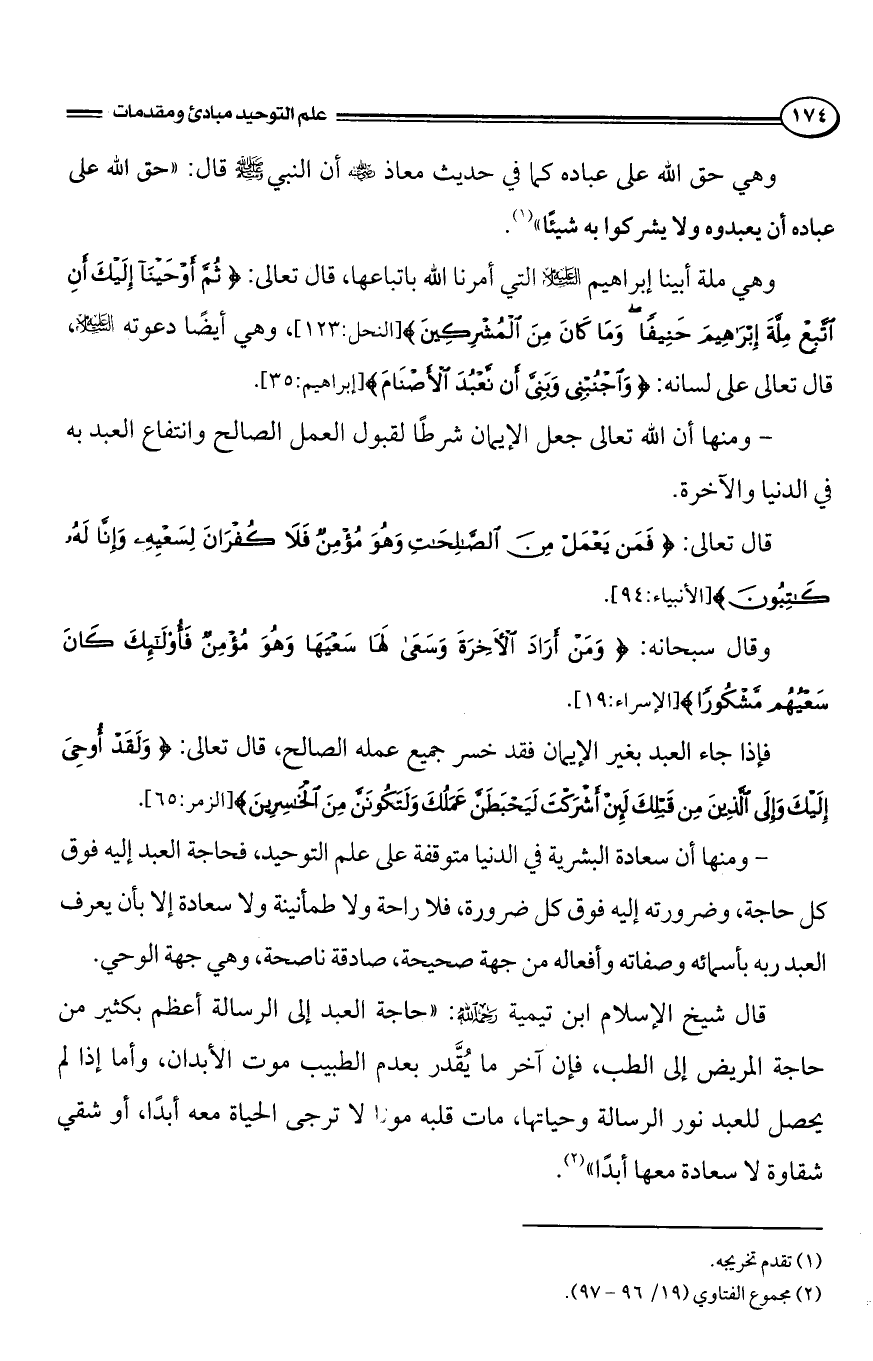 ١٧٤ علم التوحيد مبادئ ومقدمات
وهي حق الله على عباده كما في حديث معاذ رضي الله عنه أن النبي ﷺ قال: «حق الله على
عباده أن يعبدوه ولا يشركوا به شيئًا»(١).
وهي ملة أبينا إبراهيم عليه السلام التي أمرنا الله باتباعها، قال تعالى: ﴿ ثُمَّ أَوْحَيْنَآ إِلَيْكَ أَنِ
ٱتَّبِعْ مِلَّةَ إِبْرَٰهِيمَ حَنِيفًا ۖ وَمَا كَانَ مِنَ ٱلْمُشْرِكِينَ ﴾[النحل:١٢٣]، وهي أيضًا دعوته عليه السلام،
قال تعالى على لسانه: ﴿ وَٱجْنُبْنِى وَبَنِىَّ أَن نَّعْبُدَ ٱلْأَصْنَامَ ﴾[إبراهيم:٣٥].
- ومنها أن الله تعالى جعل الإيمان شرطًا لقبول العمل الصالح وانتفاع العبد به
في الدنيا والآخرة.
قال تعالى: ﴿ فَمَن يَعْمَلْ مِنَ ٱلصَّٰلِحَٰتِ وَهُوَ مُؤْمِنٌ فَلَا كُفْرَانَ لِسَعْيِهِۦ وَإِنَّا لَهُۥ
كَٰتِبُونَ ﴾[الأنبياء:٩٤].
وقال سبحانه: ﴿ وَمَنْ أَرَادَ ٱلْأَخِرَةَ وَسَعَىٰ لَهَا سَعْيَهَا وَهُوَ مُؤْمِنٌ فَأُو۟لَٰٓئِكَ كَانَ
سَعْيُهُم مَّشْكُورًا ﴾[الإسراء:١٩].
فإذا جاء العبد بغير الإيمان فقد خسر جميع عمله الصالح، قال تعالى: ﴿ وَلَقَدْ أُوحِىَ
إِلَيْكَ وَإِلَى ٱلَّذِينَ مِن قَبْلِكَ لَئِنْ أَشْرَكْتَ لَيَحْبَطَنَّ عَمَلُكَ وَلَتَكُونَنَّ مِنَ ٱلْخَٰسِرِينَ ﴾[الزمر:٦٥].
- ومنها أن سعادة البشرية في الدنيا متوقفة على علم التوحيد، فحاجة العبد إليه فوق
كل حاجة، وضرورته إليه فوق كل ضرورة، فلا راحة ولا طمأنينة ولا سعادة إلا بأن يعرف
العبد ربه بأسمائه وصفاته وأفعاله من جهة صحيحة، صادقة ناصحة، وهي جهة الوحي.
قال شيخ الإسلام ابن تيمية رحمه الله: «حاجة العبد إلى الرسالة أعظم بكثير من
حاجة المريض إلى الطب، فإن آخر ما يُقَّدر بعدم الطبيب موت الأبدان، وأما إذا لم
يحصل للعبد نور الرسالة وحياتها، مات قلبه موتا لا ترجى الحياة معه أبدًا، أو شقي
شقاوة لا سعادة معها أبدًا»(٢).
(١) تقدم تخريجه.
(٢) مجموع الفتاوي (١٩/ ٩٦ - ٩٧).